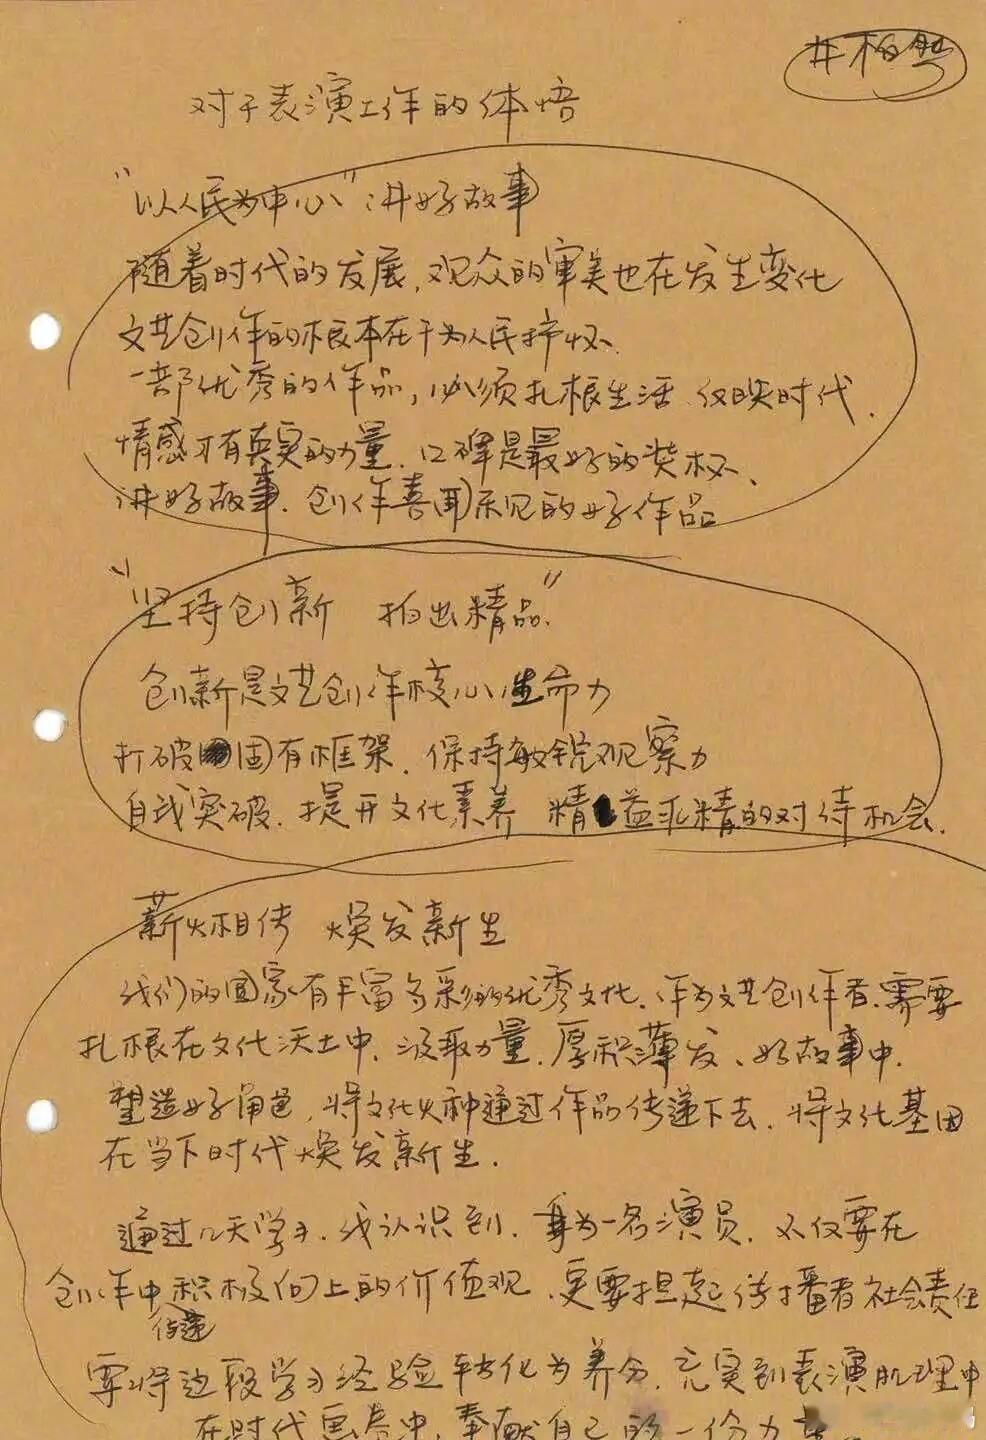 井柏然
对于表演工作的体悟
“以人民为中心”讲好故事
随着时代的发展,观众的审美也在发生变化
文艺创作的根本在于为人民抒怀、
一部优秀的作品,必须扎根生活、反映时代.
情感才有真实的力量.口碑是最好的奖杯、
讲好故事.创作喜闻乐见的好作品
“坚持创新 拍出精品”
创新是文艺创作核心生命力
打破固有框架.保持敏锐观察力
自我突破.提升文化素养 精益求精的对待机会.
薪火相传 焕发新生
我们的国家有丰富多彩的优秀文化、作为文艺创作者.需要
扎根在文化沃土中.汲取力量.厚积薄发、好故事中.
塑造好角色,将文化火种通过作品传递下去.将文化基因
在当下时代焕发新生.
通过几天学习.我认识到.身为一名演员.不仅要在
创作中积极向上的价值观.更要担起传播者社会责任
传递
要将这段学习经验转化为养分.充实到表演肌理中
在时代画卷中.奉献自己的一份力